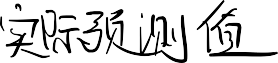 实际预测值